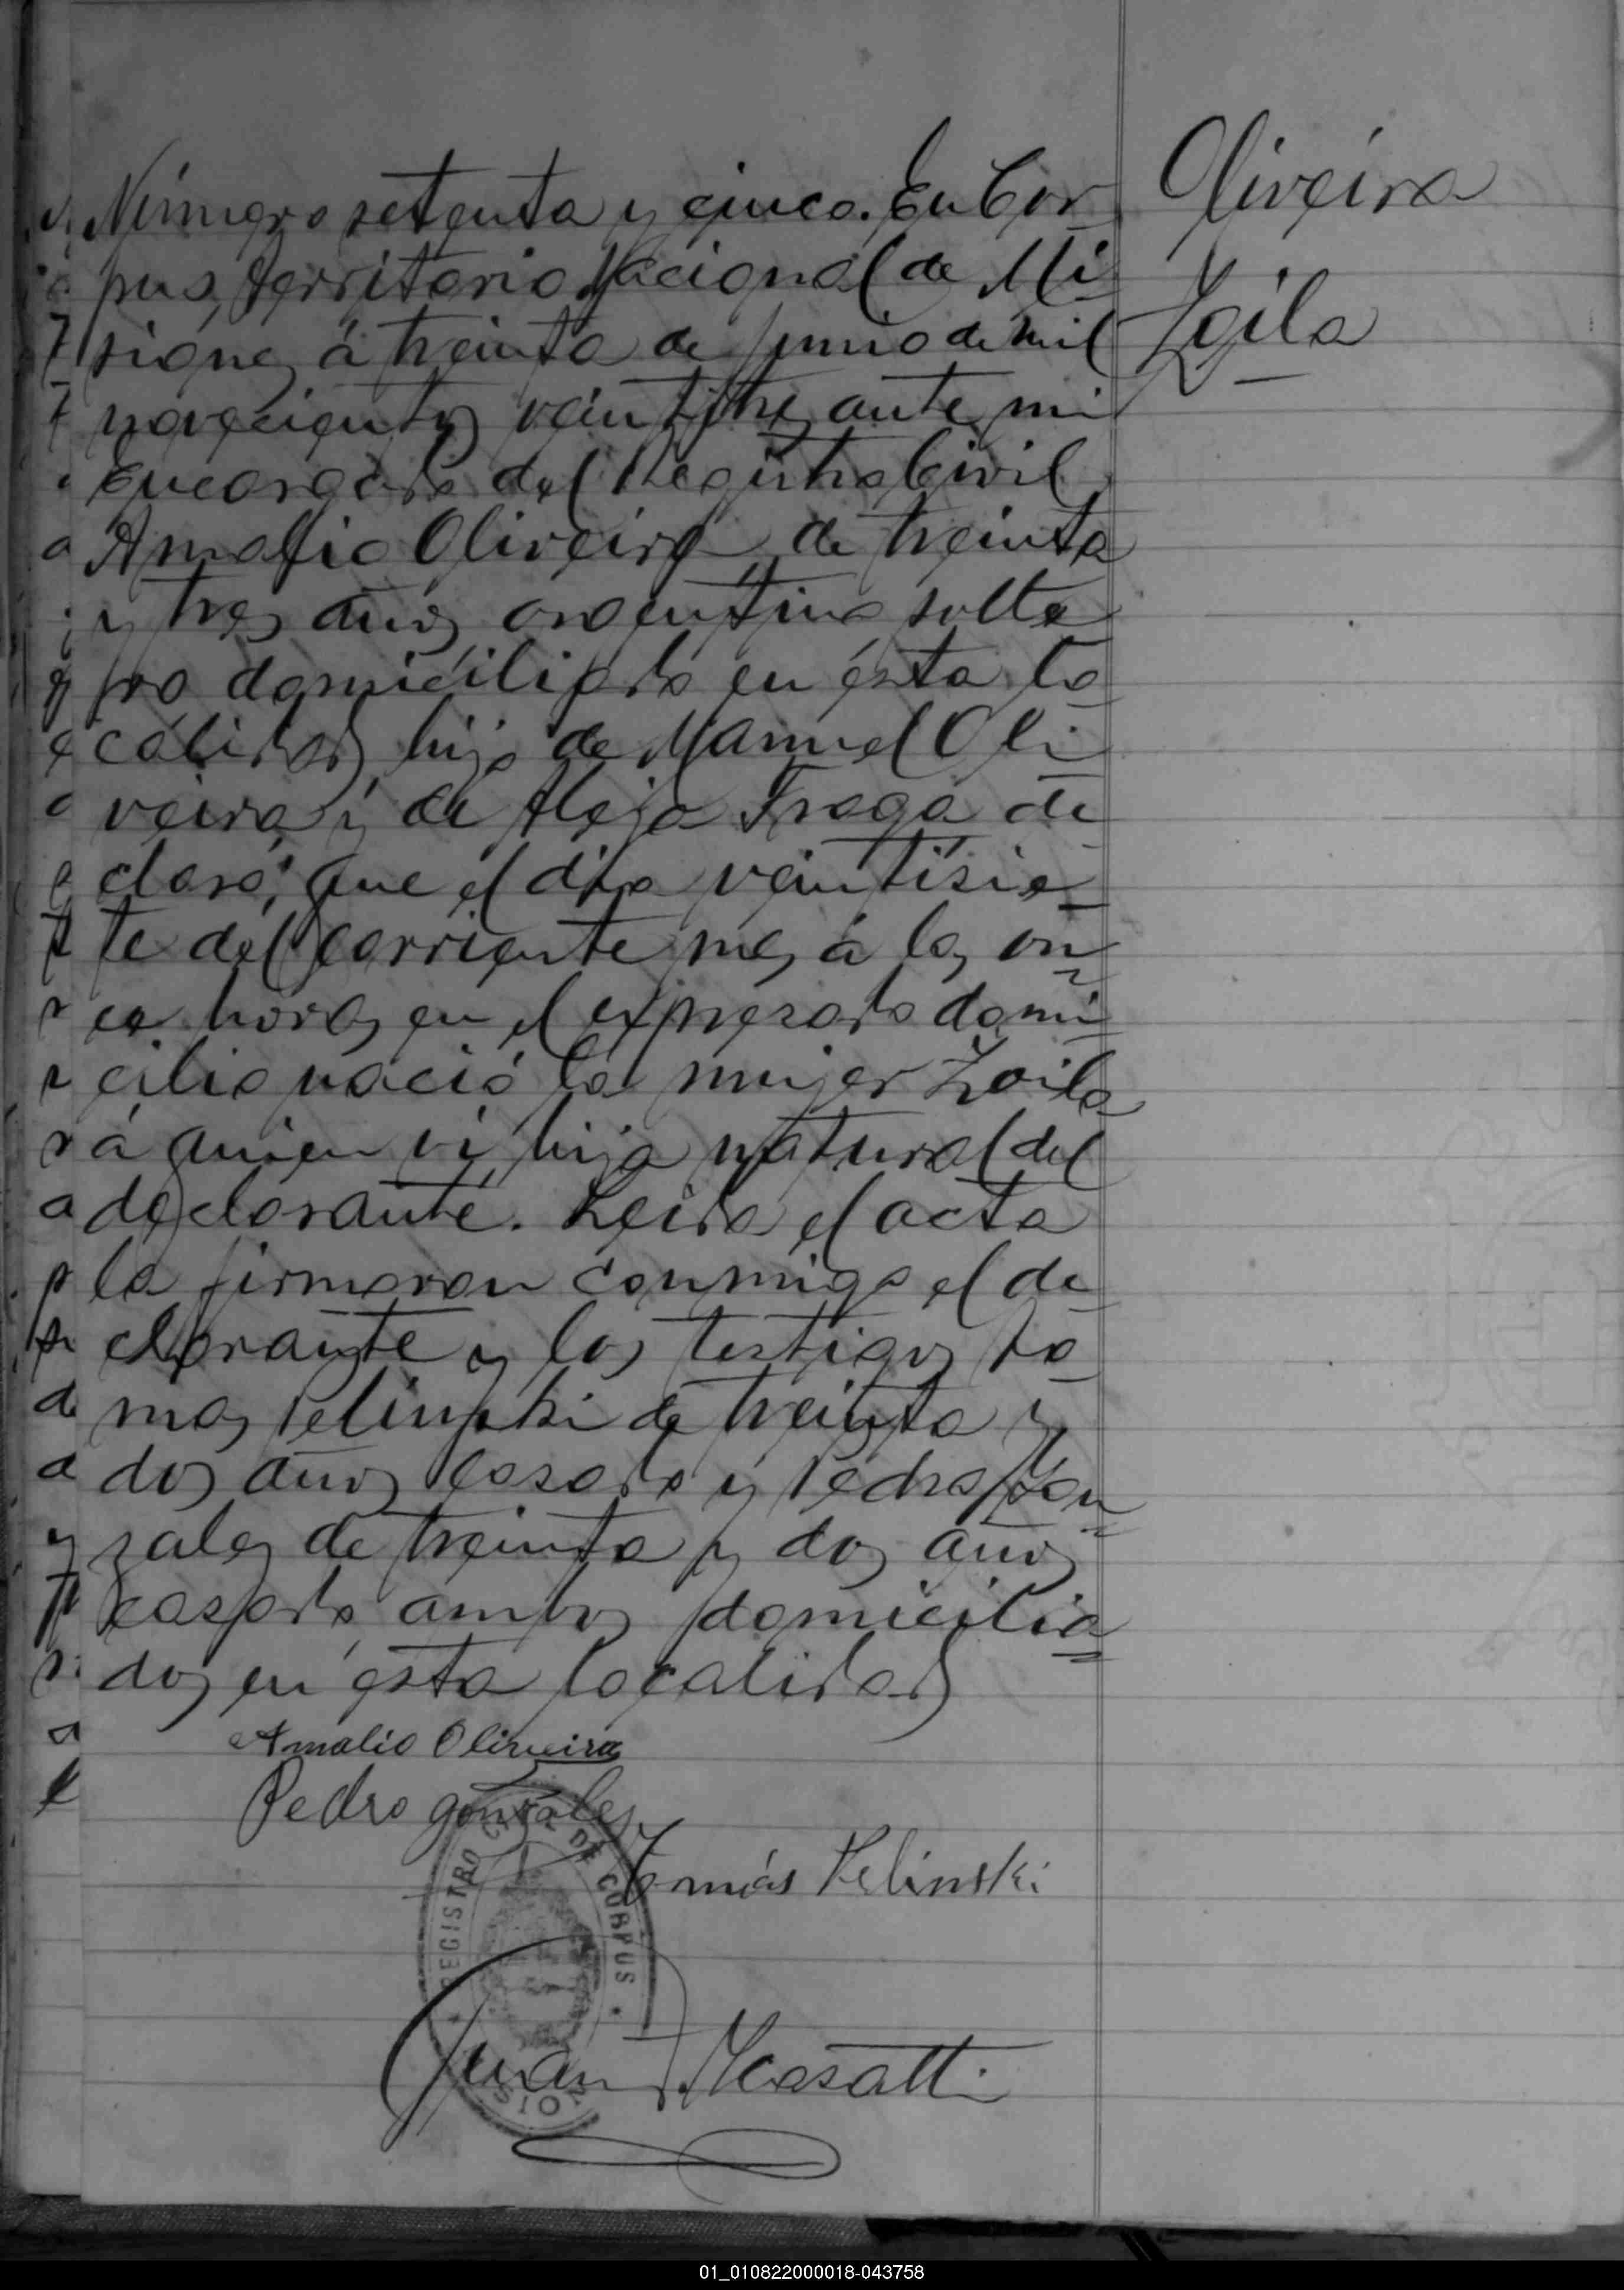 Oliveira
Zoila
Número setenta y cinco. En Cor
pus, Territorio Nacional de Mi
siones á treinta de Junio de mil
novecientos veintitres ante mi
Encargado del Registro Civil,
Amalio Oliveira de treinta
y tres años argentino solte
ro domiciliado en ésta lo
calidad hijo de Manuel Oli
veira y de Aleja Fraga de
claró; que el dia veintisie
te del corriente mes á las on
ce horas en el expresado domi
cilio nació la mujer Zoila
á quien vi hija natural del
declarante. Leida el acta
la firmaron conmigo el de
clarante y los testigos To
mas Pelinski de treinta y
dos años casado y Pedro Gon
zales de treinta y dos años
casado ambos domicilia
dos en ésta localidad
Amalio Oliveira
Pedro gonzales
Tomás Pelinski
REGISTRO CIVIL DE CORPUS
Juan